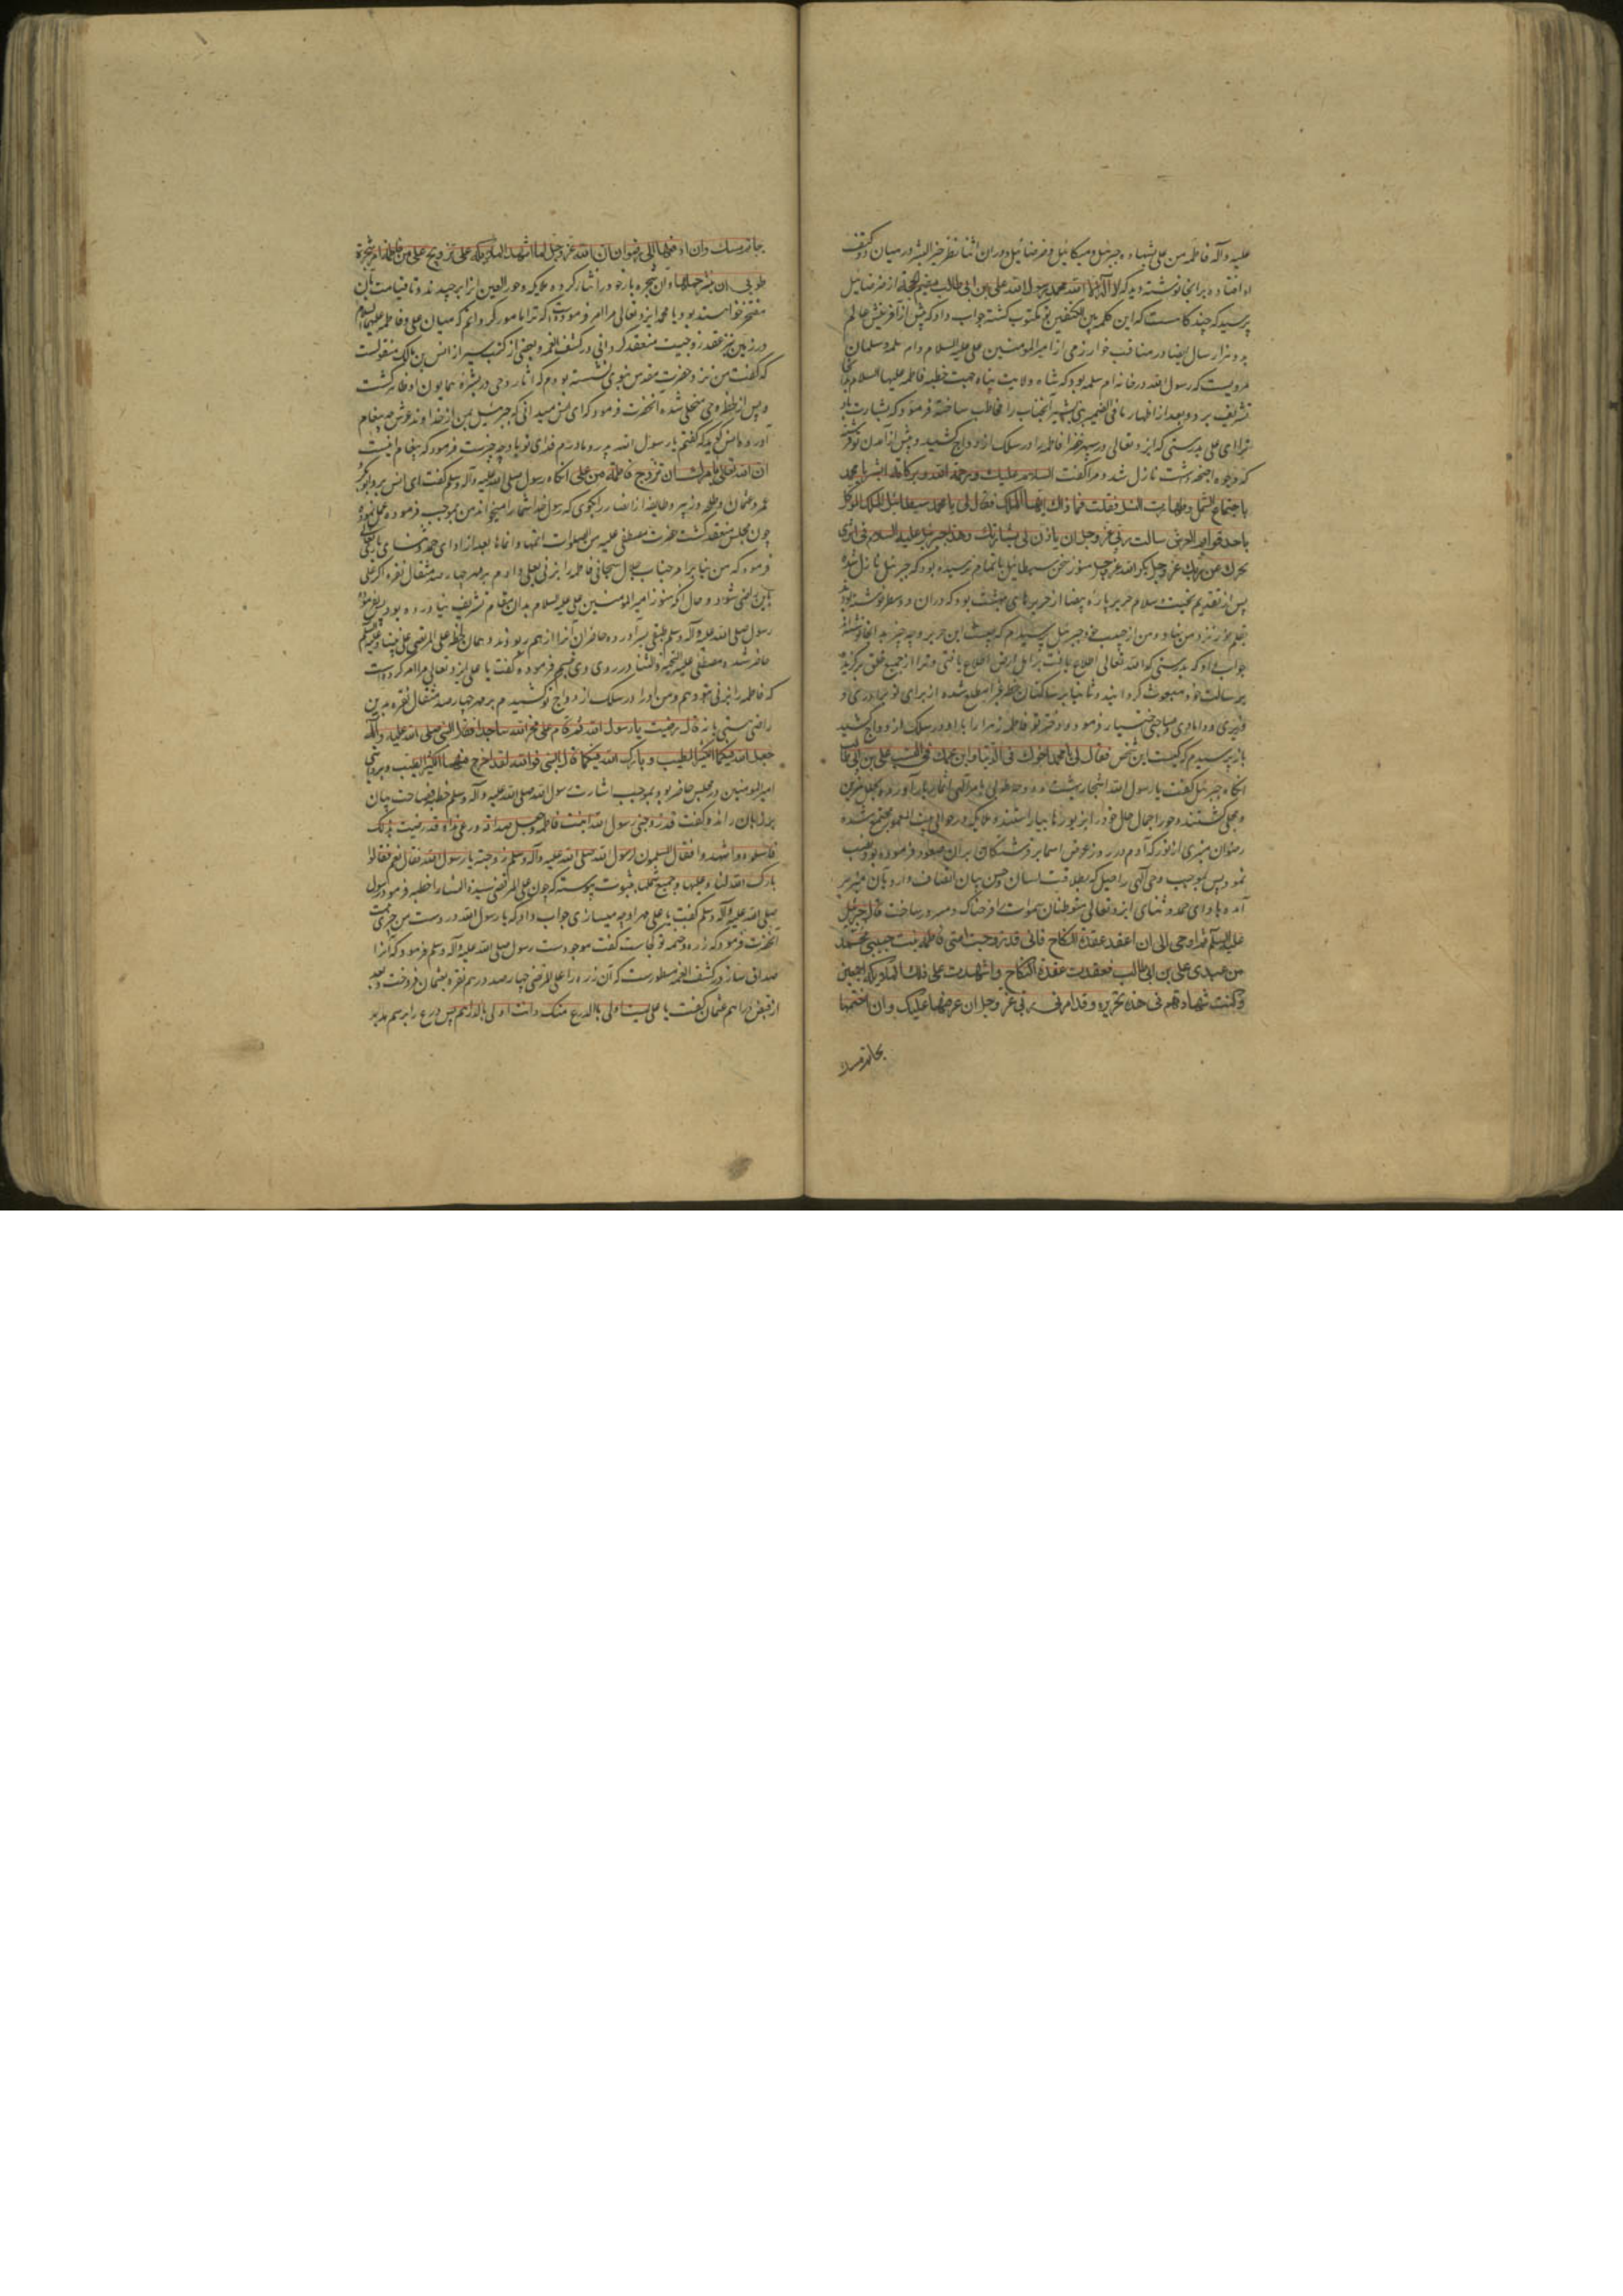 علیه وآله فاطمه من علی بشهاده جبرئیل ومیکائیل وصرصائیل ودران اثنا نظر خیر البشر در میان دو کتف
او افتاده برانجا نوشته دید که لا اله الا الله محمد رسول الله علی بن ابی طالب مقیم الحجة از صرصائیل
پرسید که چند کاست که این کلمه بین الکتفین تو مکتوب کشته جواب داد که پیش از آفرینش عالم
بدو هزار سال ایضا در مناقب خوارزمی از امیرالمومنین علی علیه السلام وام سلمه وسلمان
مرویست که رسول الله در خانه ام سلمه بود که شاه ولایت پناه جهت خطبه فاطمه علیها السلام
تشریف برد وبعد از اظهار ما فی الضمیر آنجناب را مخاطب ساخته فرمود که بشارت باد
ترا ای علی بدرستی که ایزد تعالی در سپهر خضرا فاطمه را در سلک ازدواج تو کشید و پیش از آمدن تو فرشته
که وجوه واجنحه داشت نازل شد و مرا کفت السلام علیک ورحمة الله وبرکاته ابشر یا محمد
باجتماع الشمل وطهارت النسل فقلت فما ذاک ایها الملک فقال لی یا محمد سبطائیل الملک الموکل
باحد قوایم العرش سالت ربی عز وجل ان یاذن لی بشارتک وهذا جبرئیل علیه السلام فی اثری
یخبرک عن ربک عز وجل بکرامة الله عز وجل هنوز سخن سبطائیل باتمام نرسیده بود که جبرئیل نازل شده
پس از تقدیم تحیت وسلام حریر پاره بیضا از حریرهای بهشت بود که دران دو سطر نوشته بود
بقلم نور نزد من نهاد و من از حبیب خود جبرئیل پرسیدم که چیست این حریر و چه چیز بدانجا نوشته اند
جواب داد که بدرستی که الله تعالی اطلاع یافت بر اهل ارض اطلاع یافتنی وترا از جمیع خلق برکزیده
برسالت خود مبعوث کردانید وثانیا بر ساکنان خطه غبرا مطلع شده از برای تو برادری و
وزیری ودامادی وصاحبی اختیار فرمود ودختر تو فاطمه زهرا را با او در سلک ازدواج کشید
باز پرسیدم که کیست این شخص فقال لی یا محمد اخوک فی الدنیا وابن عمک فی النسب علی بن ابی طالب
انکاه جبرئیل کفت یا رسول الله اشجار بهشت ودوحه طوبی بامر الهی اثمار بار آورده بحلل مزین
ومحلی کشتند وحور اجمال حلل خود را بزیورها بیاراستند وملایکه در حوالی بیت المعمور مجتمع شده
رضوان منبری از نور که آدم در روز عرض اسما بر فرشتکان بران صعود فرموده بود نصب
نمود پس بموجب وحی الهی راحیل که بطلاقت لسان وحسن بیان اتصاف دارد بران منبر بر
آمده بادای حمد وثنای ایزد تعالی متوطنان سموات را فرحناک ومسرور ساخت قال جبرئیل
علیه السلام ثم اوحی الی ان اعقد عقدة النکاح فانی قد زوجت امتی فاطمه بنت حبیبی محمد
من عبدی علی بن ابی طالب فعقدت عقدة النکاح واشهدت علی ذلک الملایکه اجمعین
وکتبت شهادتهم فی هذه الحریره وقد امرنی ربی عز وجل ان عرضها علیک وان اختمها
بخاتم مسک
بخاتم مسک وان ادفعها الی رضوان ان الله عز وجل لما اشهد الملایکه علی تزویج علی من فاطمه امر شجرة
طوبی ان ینثر حملها وان شجره بار خود را نثار کرده ملایکه وحور العین آنرا برچیدند وتا قیامت بان
مفتخر خواهند بود یا محمد ایزد تعالی مرا امر فرموده است که ترا مامور کردانم که میان علی وفاطمه علیهما السلام
در زمین نیز عقد زوجیت منعقد کردانی ودر کشف الغمه وبعضی از کتب سیر از انس بن مالک منقولست
که کفت من نزد حضرت مقدس نبوی نشسته بودم که آثار وحی در بشره همایون او ظاهر کشت
وپس از لحظه وحی منجلی شده آنحضرت فرمود که ای انس میدانی که جبرئیل بمن از خداوند عرش چه پیغام
آورد وانس کوید که کفتم یا رسول الله پدر ومادرم فدای تو باد چه چیزست فرمود که پیغام اینست
ان الله تعالی یامرک ان تزوج فاطمة من علی انکاه رسول صلی الله علیه وآله وسلم کفت ای انس برو وابوبکر
عمر وعثمان وطلحه وزبیر وطایفه از انصار را بکوی که رسول خدا شما را میخواند من بموجب فرموده عمل نموده
چون مجلس منعقد کشت حضرت مصطفی علیه من الصلوات اتمها وانماها بعد از ادای حمد وثنای باری تعالی
فرمود که من بنابر امر جناب جلال سبحانی فاطمه را بزنی بعلی دادم بر مهر چهار صد مثقال نقره اکر علی
باین راضی شود وحال آنکه هنوز امیرالمومنین علی علیه السلام بدان مقام تشریف نیاورده بود پس بفرموده
رسول صلی الله علیه وآله وسلم طبقی بسر آورده حاضران آنرا از هم ربودند و همان لحظه علی المرتضی علی نبینا وعلیه السلام
حاضر شده مصطفی علیه التحیة والثنا در روی وی تبسم فرموده کفت یا علی ایزد تعالی مرا امر کرده است
که فاطمه را بزنی بتو دهم ومن او را در سلک ازدواج تو کشیدم بر مهر چهار صد مثقال نقره بدین
راضی هستی یا نه قال رضیت یا رسول الله ثم قام علی فخر لله ساجدا فقال النبی صلی الله علیه وآله
جعل الله فیکما الکثیر الطیب وبارک الله فیکما قال انس فوالله لقد اخرج منهما الکثیر الطیب وبروایتی
امیرالمومنین در مجلس حاضر بود بموجب اشارت رسول الله صلی الله علیه وآله وسلم خطبه فصاحت بیان
بر زبان راند وکفت قد زوجنی رسول الله ابنته فاطمه وجعل صداقها درعی هذا وقد رضیت بذلک
فاسئلوه واشهدوا فقال المسلمون لرسول الله صلی الله علیه وآله وسلم زوجته یا رسول الله فقال نعم فقالوا
بارک الله لهما وعلیهما وجمع شملهما بثبوت پیوسته که چون علی المرتضی سیدة النساء را خطبه فرمود رسول
صلی الله علیه وآله وسلم کفت یا علی مهر او چه میسازی جواب داد که یا رسول الله در دست من چیزی نیست
آنحضرت فرمود که زره حطمیه تو کجاست کفت موجودست رسول صلی الله علیه وآله وسلم فرمود که آنرا
صداق ساز ودر کشف الغمه مسطورست که آن زره را علی المرتضی بچهارصد درهم نقره بعثمان فروخت وبعد
از قبض دراهم عثمان کفت یا علی لست اولی بالدرع منک وانت اولی بالدراهم پس درع را برسم هدیه